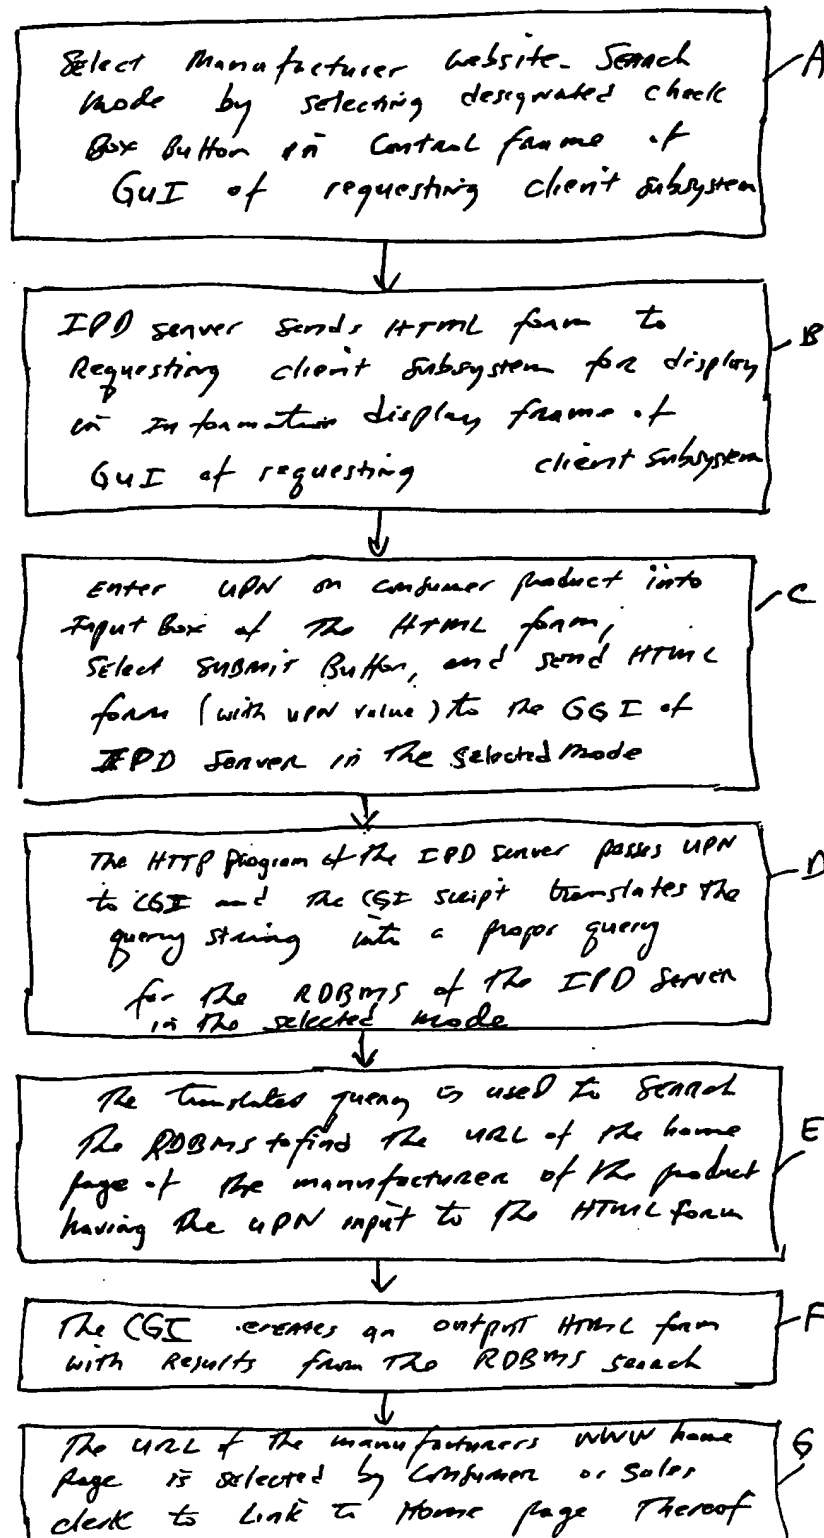 Select Manufacturer Website-Search
Mode by selecting designated check
Box Button in Control frame of
GUI of requesting client subsystem
A
IPD server sends HTML form to
Requesting client subsystem for display
in Information display frame of
GUI of requesting client subsystem
B
Enter UPN on consumer product into
Input Box of the HTML form,
Select SUBMIT Button, and send HTML
form (with UPN value) to the CGI of
IPD Server in the selected mode
C
The HTTP program of the IPD server passes UPN
to CGI and the CGI script translates the
query string into a proper query
for the RDBMS of the IPD Server
in the selected mode
D
The translated query is used to search
the RDBMS to find the URL of the home
page of the manufacturer of the product
having the UPN input to the HTML form
E
The CGI creates an output HTML form
with Results from the RDBMS search
F
The URL of the manufacturers WWW home
page is selected by Consumer or Sales
clerk to Link to Home page Thereof
G